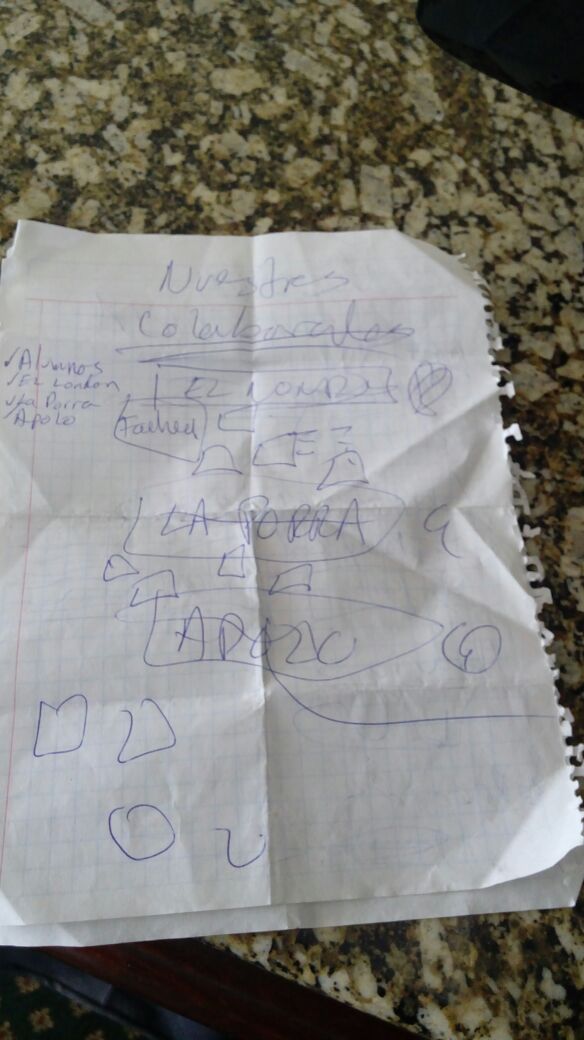 Nuestros
Colaboradores
✓ Alumnos
✓ EL London
✓ La Porra
✓ Apolo
EL
LA PORRA
APOLO